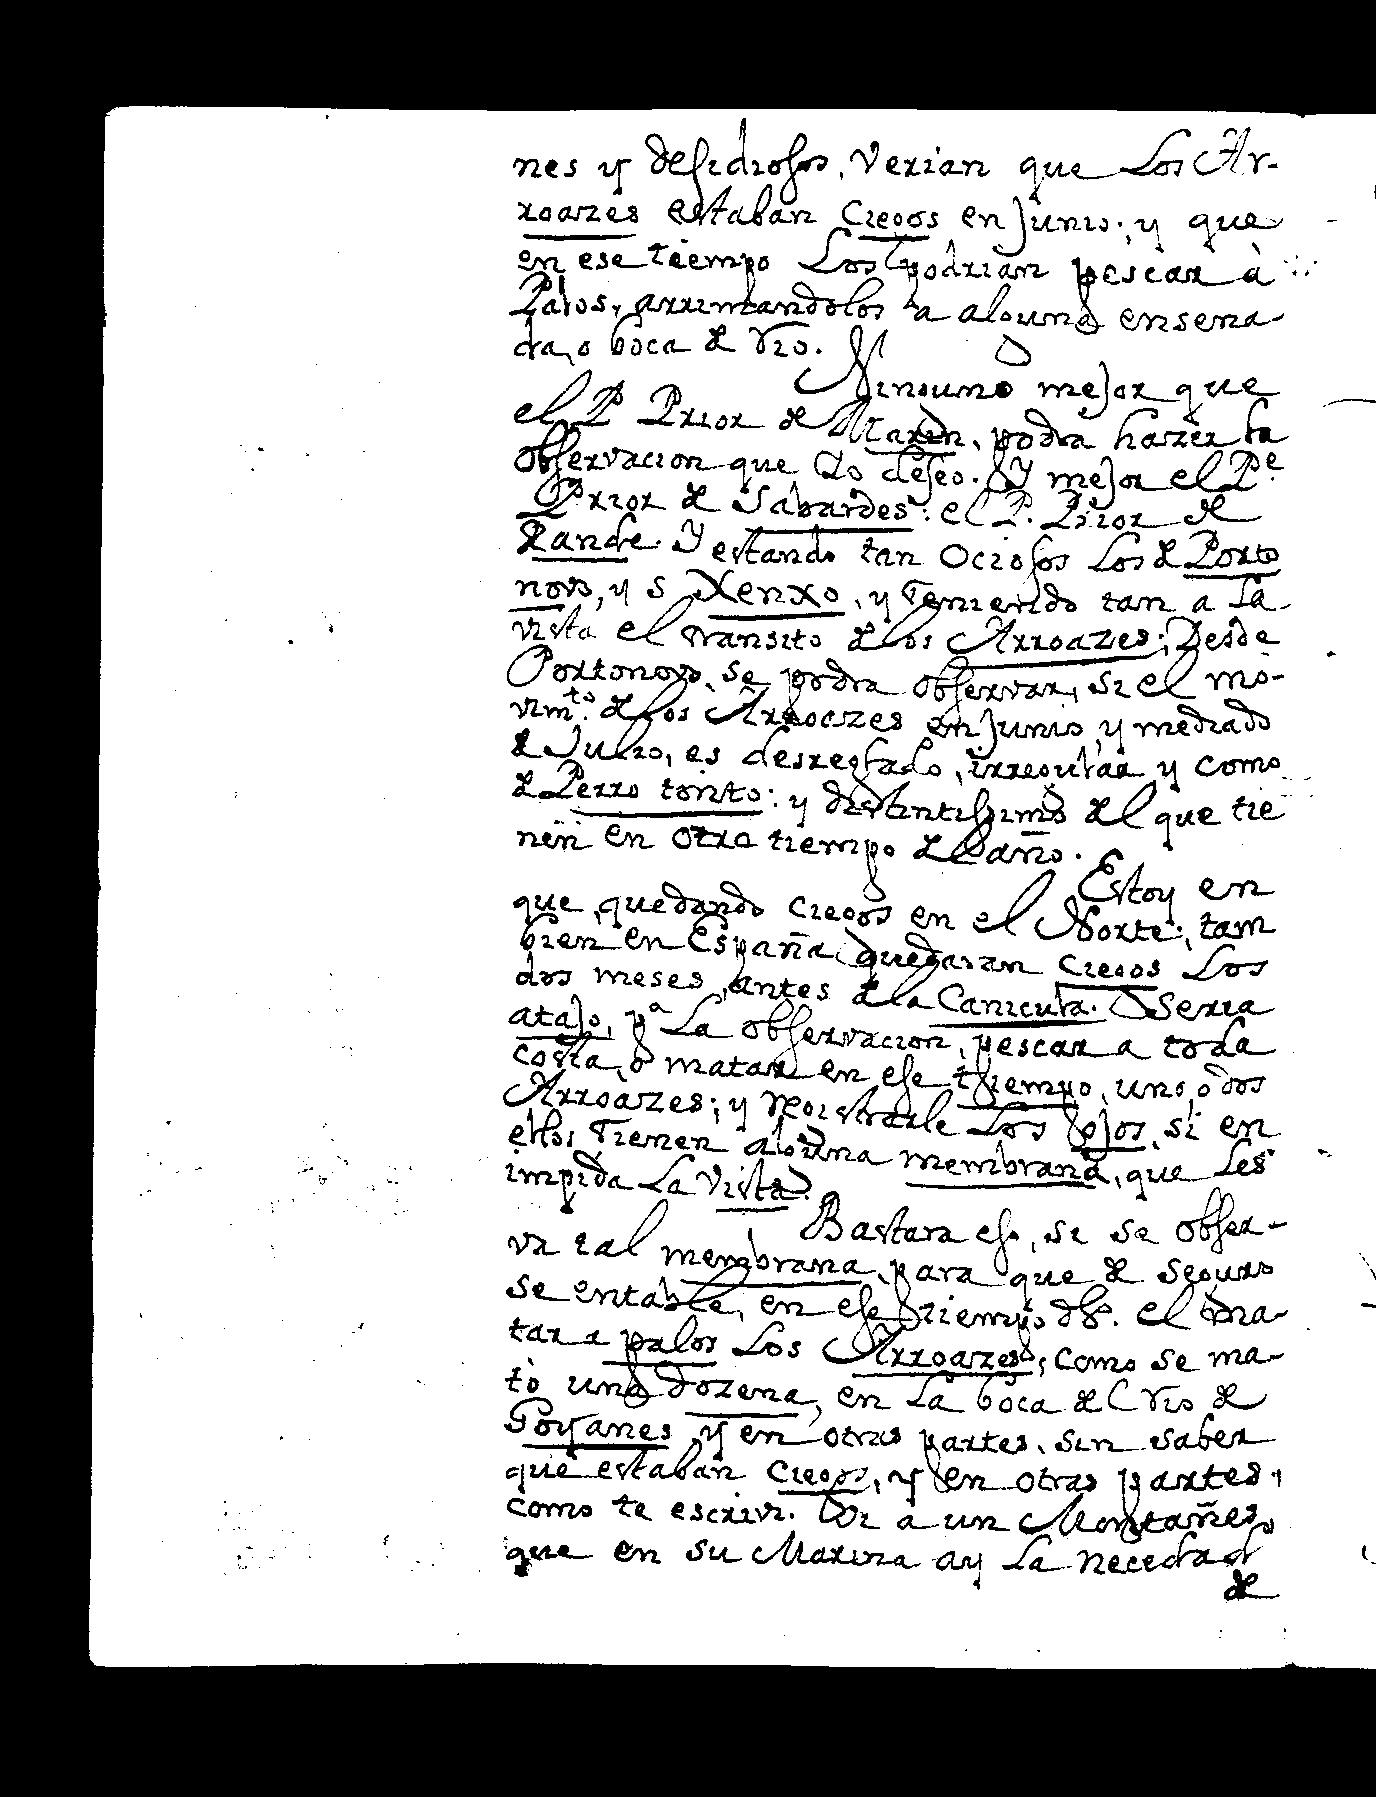 nes y desidiosos, verian que Los Ar-
roazes estaban Ciegos en Junio; y que
en ese tiempo Los podrian pescar à
Palos, arrimandolos a alguna ensena-
da, o boca de Rio.
Ninguno mejor que
el P. Prior de Marin, podra hazer la
observacion que Yo deseo. Y mejor el Pe.
Prior de Sabardes: el P. Prior de
Rande. Y estando tan Ociosos Los de Porto
novo, y S. Xenxo, y Teniendo tan a La
vista el transito de los Arroazes; Desde
Portonovo, se podra observar, si el mo-
vimto. de los Arroazes en Junio, y mediado
de Julio, es desreglado, irregular y como
de Perro tonto: y distintissimo del que tie
nen en otro tiempo del año.
Estoy en
que, quedando ciegos en el Norte; tam
bien en España quedaran Ciegos Los
dos meses, antes de la Canicula. Seria
atajo, pa. La observacion, pescar a toda
costa, o matar en ese tiempo, uno, o dos
Arroazes; y registrarle Los Ojos, si en
ellos Tienen alguna membrana, que Les
impida La Vista.
Bastara eso, si se obser-
va tal membrana, para que de seguro
se entable, en ese tiempo dho. el ma-
tar a palos Los Arroazes, como se ma-
tò una dozena, en La boca del Rio de
Goyanes, y en otras partes, sin saber
que estaban Ciegos, y en otras partes,
como te escrivi. Vi a un Montañes,
que en su Marina ay La necedad
de